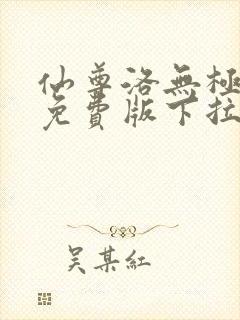 仙尊洛無極
免費版下拉
吴某紅